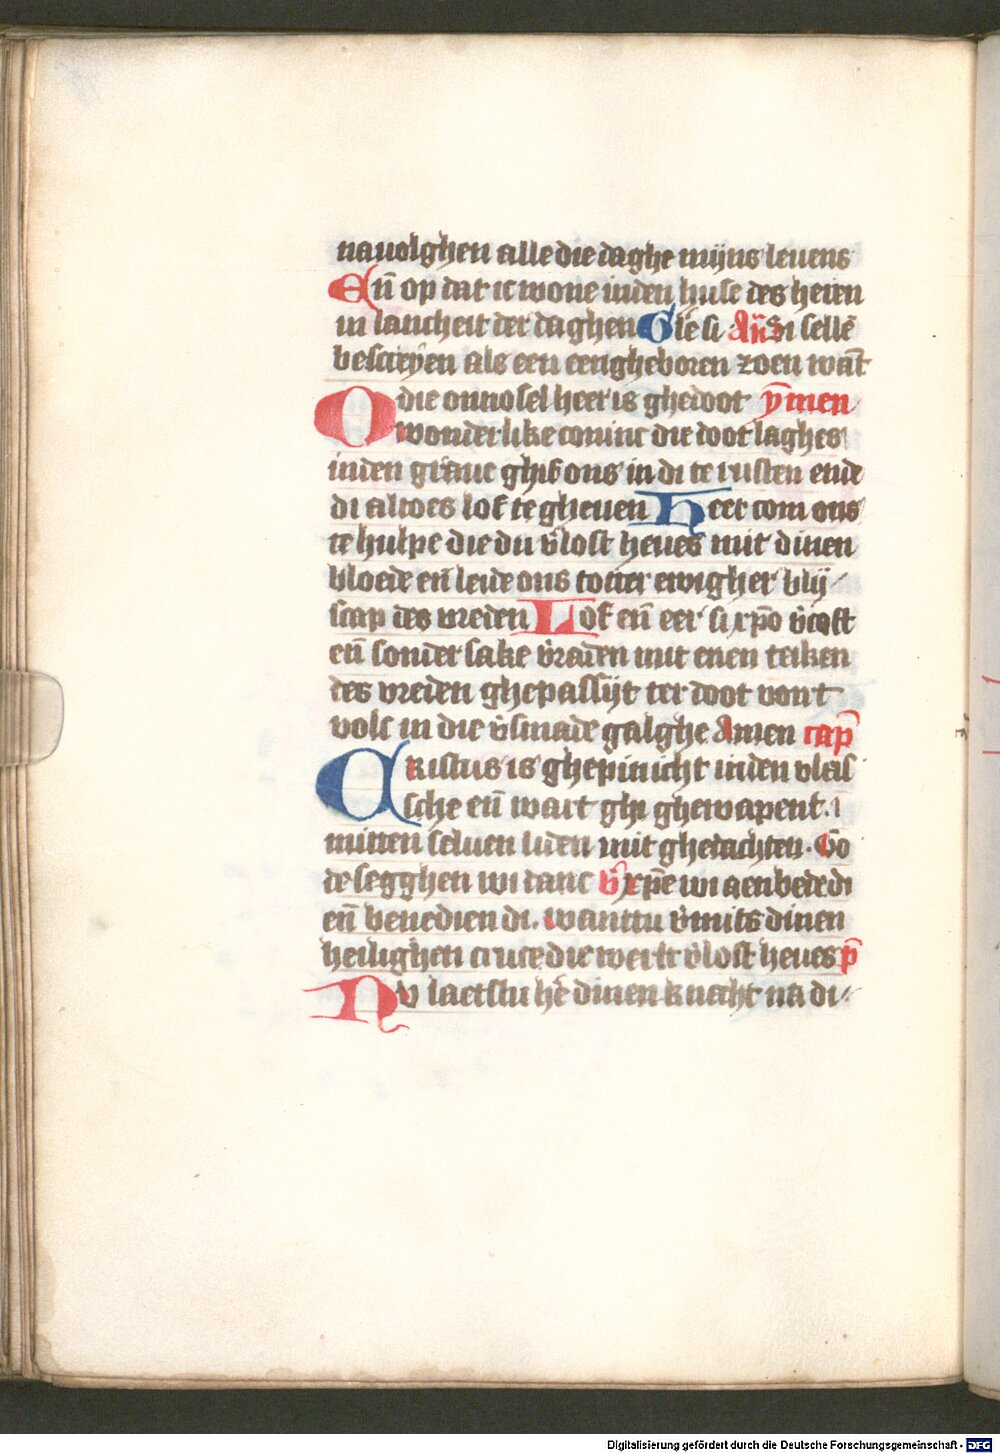 nauolghen alle die daghe mijns leuens
En̄ op dat ic wone inden huse des heren
in lancheit der daghen Glē si An̄ Si sellē
bescreyen als een eengheboren zoen wāt
die onnosel heer is ghedoot ȳmnen
O wonderlike coninc die doot laghes
inden graue ghif ons in di te rusten ende
di altoes lof te gheuen Heer com ons
te hulpe die du v̄lost heues mit dinen
bloede en̄ leide ons totter ewigher blij
scap des vreden Lof en̄ eer si xp̄o v̄coft
en̄ sonder sake v̄raden mit enen teiken
des vreden ghepassijt ter doot vont
volc in die v̄smade galghe Amen cap̄
Cristus is ghepinicht inden vleis
sche en̄ wart ghi ghewapent
mitten seluen liden mit ghedachten. Go
de segghen wi danc v̄ xp̄e wi aenbede di
en̄ benedien di. wanttu v̄mits dinen
heilighen cruce die werlt v̄lost heues p̄
Nv laetstu hē dinen knecht na di
Digitalisierung gefördert durch die Deutsche Forschungsgemeinschaft - DFG